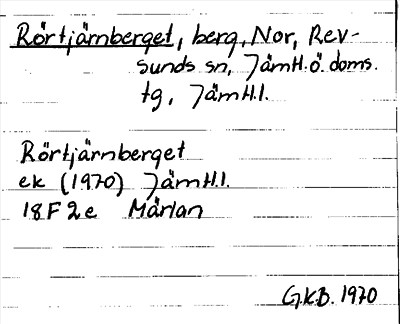 Rörtjärnberget, berg, Nor, Rev-
sunds sn, Jämtl. ö. doms.
tg, Jämtl.
Rörtjärnberget
ek (1970) Jämtl.
18F 2e Mårlan
G.K.B. 1970